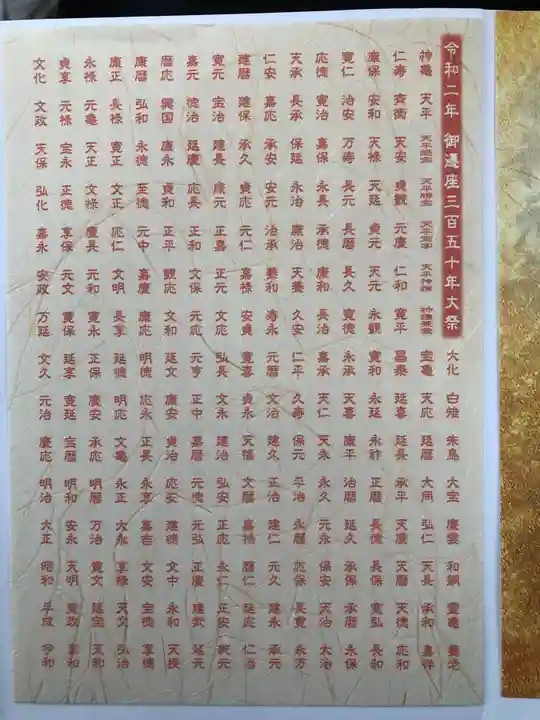 令和二年 御遷座三百五十年大祭
大化 白雉 朱鳥 大宝 慶雲 和銅 霊亀 養老
神亀 天平 天平感宝 天平勝宝 天平宝字 天平神護 神護景雲 宝亀 天応 延暦 大同 弘仁 天長 承和 嘉祥
仁寿 斉衡 天安 貞観 元慶 仁和 寛平 昌泰 延喜 延長 承平 天慶 天暦 天徳 応和
康保 安和 天禄 天延 貞元 天元 永観 寛和 永延 永祚 正暦 長徳 長保 寛弘 長和
寛仁 治安 万寿 長元 長暦 長久 寛徳 永承 天喜 康平 治暦 延久 承保 承暦 永保
応徳 寛治 嘉保 永長 承徳 康和 長治 嘉承 天仁 天永 永久 元永 保安 天治 大治
天承 長承 保延 永治 康治 天養 久安 仁平 久寿 保元 平治 永暦 応保 長寛 永万
仁安 嘉応 承安 安元 治承 養和 寿永 元暦 文治 建久 正治 建仁 元久 建永 承元
建暦 建保 承久 貞応 元仁 嘉禄 安貞 寛喜 貞永 天福 文暦 嘉禎 暦仁 延応 仁治
寛元 宝治 建長 康元 正嘉 正元 文応 弘長 文永 建治 弘安 正応 永仁 正安 乾元
嘉元 徳治 延慶 応長 正和 文保 元応 元亨 正中 嘉暦 元徳 元弘 正慶 建武 延元
暦応 興国 康永 貞和 正平 観応 文和 延文 康安 貞治 応安 建徳 文中 永和 天授
康暦 弘和 永徳 至徳 元中 嘉慶 康応 明徳 応永 正長 永享 嘉吉 文安 宝徳 享徳
康正 長禄 寛正 文正 応仁 文明 長享 延徳 明応 文亀 永正 大永 享禄 天文 弘治
永禄 元亀 天正 文禄 慶長 元和 寛永 正保 慶安 承応 明暦 万治 寛文 延宝 天和
貞享 元禄 宝永 正徳 享保 元文 寛保 延享 寛延 宝暦 明和 安永 天明 寛政 享和
文化 文政 天保 弘化 嘉永 安政 万延 文久 元治 慶応 明治 大正 昭和 平成 令和